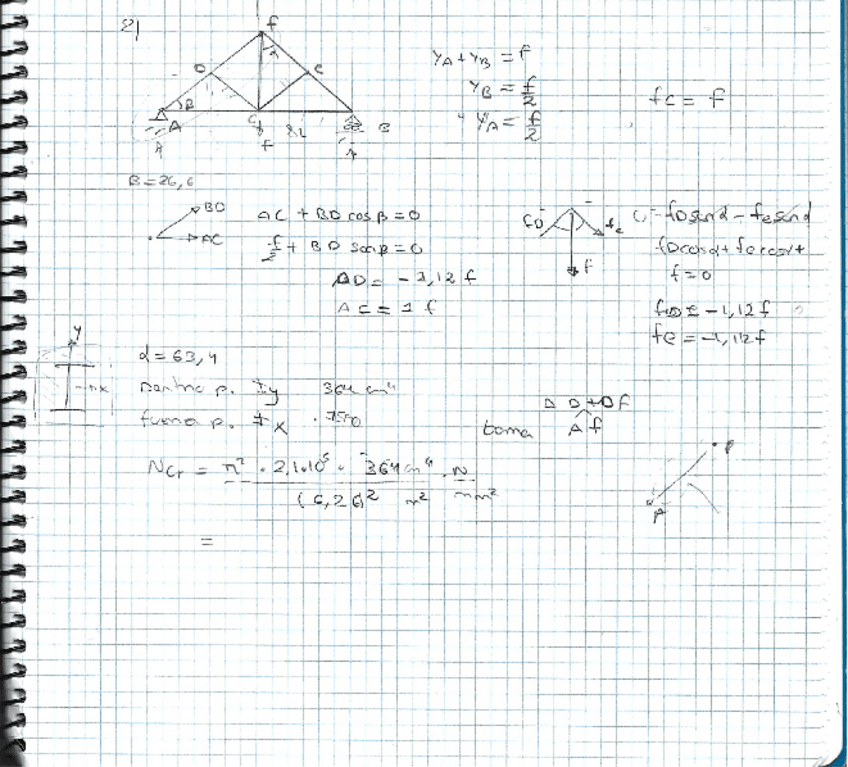 2)
F
α
D
E
β
A
C
B
F
Y_A + Y_B = F
Y_B = F/2
Y_A = F/2
FC = F
β = 26,6
BD
AC
AC + BD cos β = 0
F/2 + BD sin β = 0
AD = -1,12 F
AC = 1 F
FD
Fe
F
- FD sin α - Fe sin α
FD cos α + Fe cos α +
F = 0
FD = -1,12 F
FE = -1,12 F
y
x
α = 63,4
Dentro p. Iy 364 cm⁴
fuera p. I x
AD + DF
toma AF
Ncr = π² · 2,1·10⁵ · 364 cm⁴ · N
(6,26)² m² mm²
=